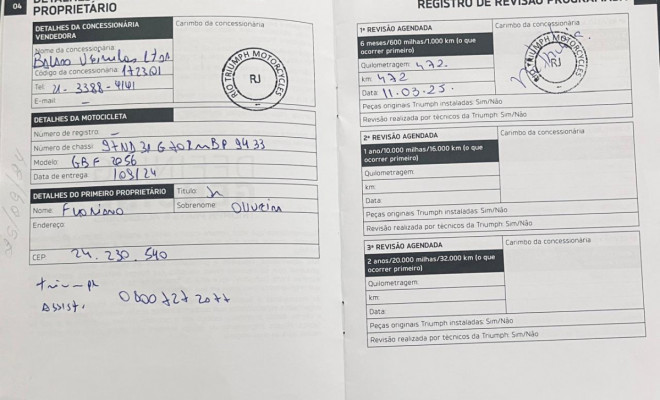 04
PROPRIETÁRIO
DETALHES DA CONCESSIONÁRIA VENDEDORA
Carimbo da concessionária
Nome da concessionária:
Código da concessionária: 1723Q1
Tel: 21-3388-4141
E-mail: -
RIO TRIUMPH MOTORCYCLES
RJ
DETALHES DA MOTOCICLETA
Número de registro: -
Número de chassi:
Modelo:
Data de entrega:
DETALHES DO PRIMEIRO PROPRIETÁRIO
Título:
Nome:
Sobrenome: Oliveira
Endereço:
CEP: 24.230.540
Assist. 0800 727 2077
REGISTRO DE REVISÃO
1ª REVISÃO AGENDADA
Carimbo da concessionária
6 meses/600 milhas/1.000 km (o que ocorrer primeiro)
Quilometragem: 472.
km: 472
Data: 11.03.25.
RIO TRIUMPH MOTORCYCLES
RJ
Peças originais Triumph instaladas: Sim/Não
Revisão realizada por técnicos da Triumph: Sim/Não
2ª REVISÃO AGENDADA
Carimbo da concessionária
1 ano/10.000 milhas/16.000 km (o que ocorrer primeiro)
Quilometragem:
km:
Data:
Peças originais Triumph instaladas: Sim/Não
Revisão realizada por técnicos da Triumph: Sim/Não
3ª REVISÃO AGENDADA
Carimbo da concessionária
2 anos/20.000 milhas/32.000 km (o que ocorrer primeiro)
Quilometragem:
km:
Data:
Peças originais Triumph instaladas: Sim/Não
Revisão realizada por técnicos da Triumph: Sim/Não